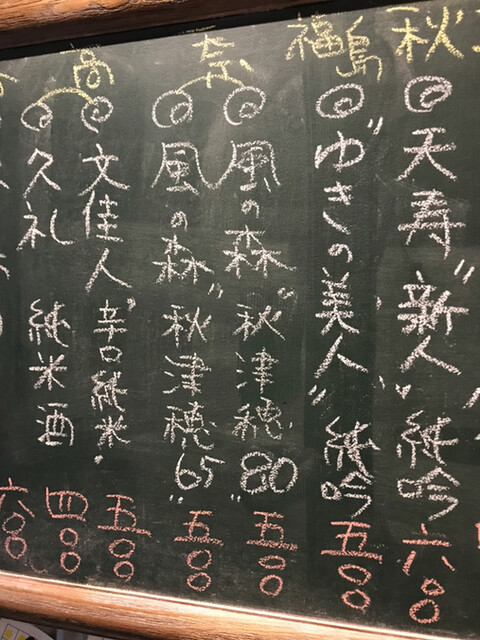 秋
天寿 "新人" 純吟 六〇〇
福島
ゆきの美人" 純吟 五〇〇
奈
風の森 "秋津穂 80" 五〇〇
風の森 "秋津穂 65" 五〇〇
高
文佳人 "辛口純米" 五〇〇
久礼 純米酒 四〇〇
六〇〇